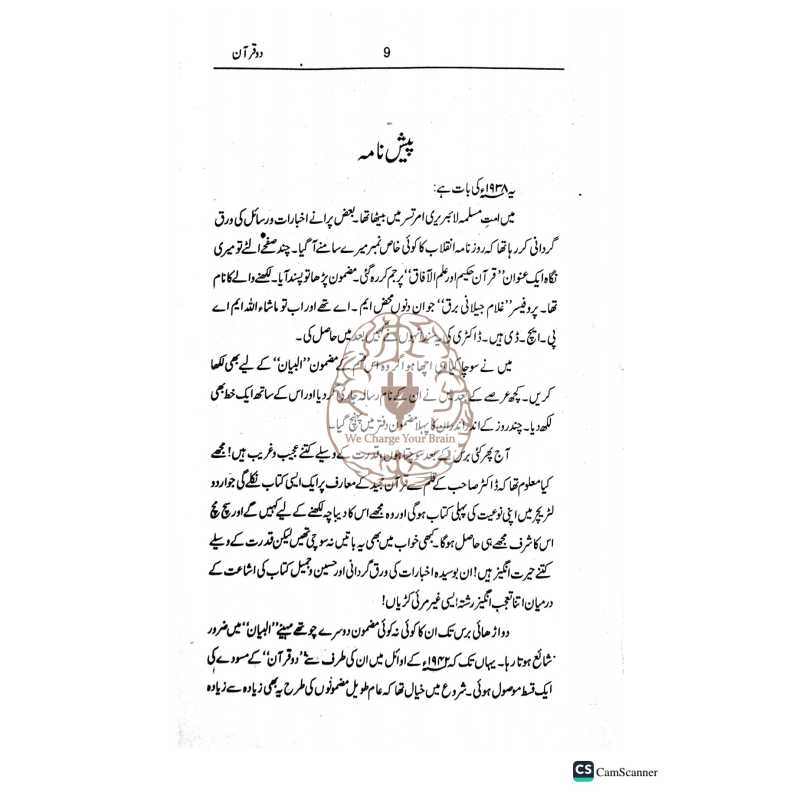 دو قرآن
9
پیش نامہ
یہ ۱۹۳۸ء کی بات ہے:
میں امتِ مسلمہ لائبریری امرتسر میں بیٹھا تھا۔ بعض پرانے اخبارات و رسائل کی ورق
گردانی کر رہا تھا کہ روزنامہ انقلاب کا کوئی خاص نمبر میرے سامنے آ گیا۔ چند صفحے الٹے تو میری
نگاہ ایک عنوان "قرآن حکیم اور علم الآفاق" پر جم کر رہ گئی۔ مضمون پڑھا تو پسند آیا۔ لکھنے والے کا نام
تھا۔ پروفیسر "غلام جیلانی برق" جو ان دنوں محض ایم۔ اے تھے اور اب تو ماشاء اللہ ایم اے
پی۔ ایچ۔ ڈی ہیں۔ ڈاکٹری کی یہ سند انہوں نے کہیں بعد میں حاصل کی۔
میں نے سوچا کیا ہی اچھا ہو اگر وہ اس قسم کے مضمون "البیان" کے لیے بھی لکھا
کریں۔ کچھ عرصے کے بعد میں نے ان کے نام رسالہ جاری کر دیا اور اس کے ساتھ ایک خط بھی
لکھ دیا۔ چند روز کے اندر اندر ان کا پہلا مضمون دفتر میں پہنچ گیا۔
آج پھر کئی برس کے بعد سوچتا ہوں، قدرت کے وسیلے کتنے عجیب و غریب ہیں! مجھے
کیا معلوم تھا کہ ڈاکٹر صاحب کے قلم سے قرآن مجید کے معارف پر ایک ایسی کتاب نکلے گی جو اردو
لٹریچر میں اپنی نوعیت کی پہلی کتاب ہوگی اور وہ مجھے اس کا دیباچہ لکھنے کے لیے کہیں گے اور سچ مچ
اس کا شرف مجھے ہی حاصل ہوگا۔ کبھی خواب میں بھی یہ باتیں نہ سوچی تھیں لیکن قدرت کے وسیلے
کتنے حیرت انگیز ہیں! ان بوسیدہ اخبارات کی ورق گردانی اور حسین و جمیل کتاب کی اشاعت کے
درمیان اتنا تعجب انگیز رشتہ ایسی غیر مرئی کڑیاں!
دو اڑھائی برس تک ان کا کوئی نہ کوئی مضمون دوسرے چوتھے مہینے "البیان" میں ضرور
شائع ہوتا رہا۔ یہاں تک کہ ۱۹۴۲ء کے اوائل میں ان کی طرف سے "دو قرآن" کے مسودے کی
ایک قسط موصول ہوئی۔ شروع میں خیال تھا کہ عام طویل مضمونوں کی طرح یہ بھی زیادہ سے زیادہ
We Charge Your Brain
CS CamScanner